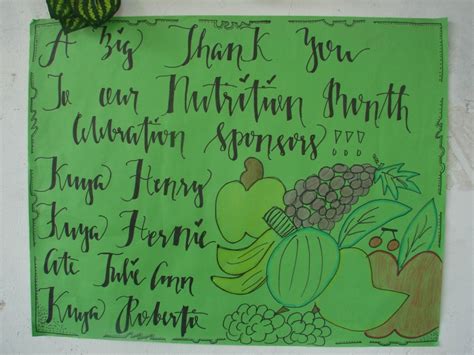 A Big Thank You
To our Nutrition Month
Celebration sponsors !!!
Kuya Henry
Kuya Hernie
Ate Julie Ann
Kuya Roberto